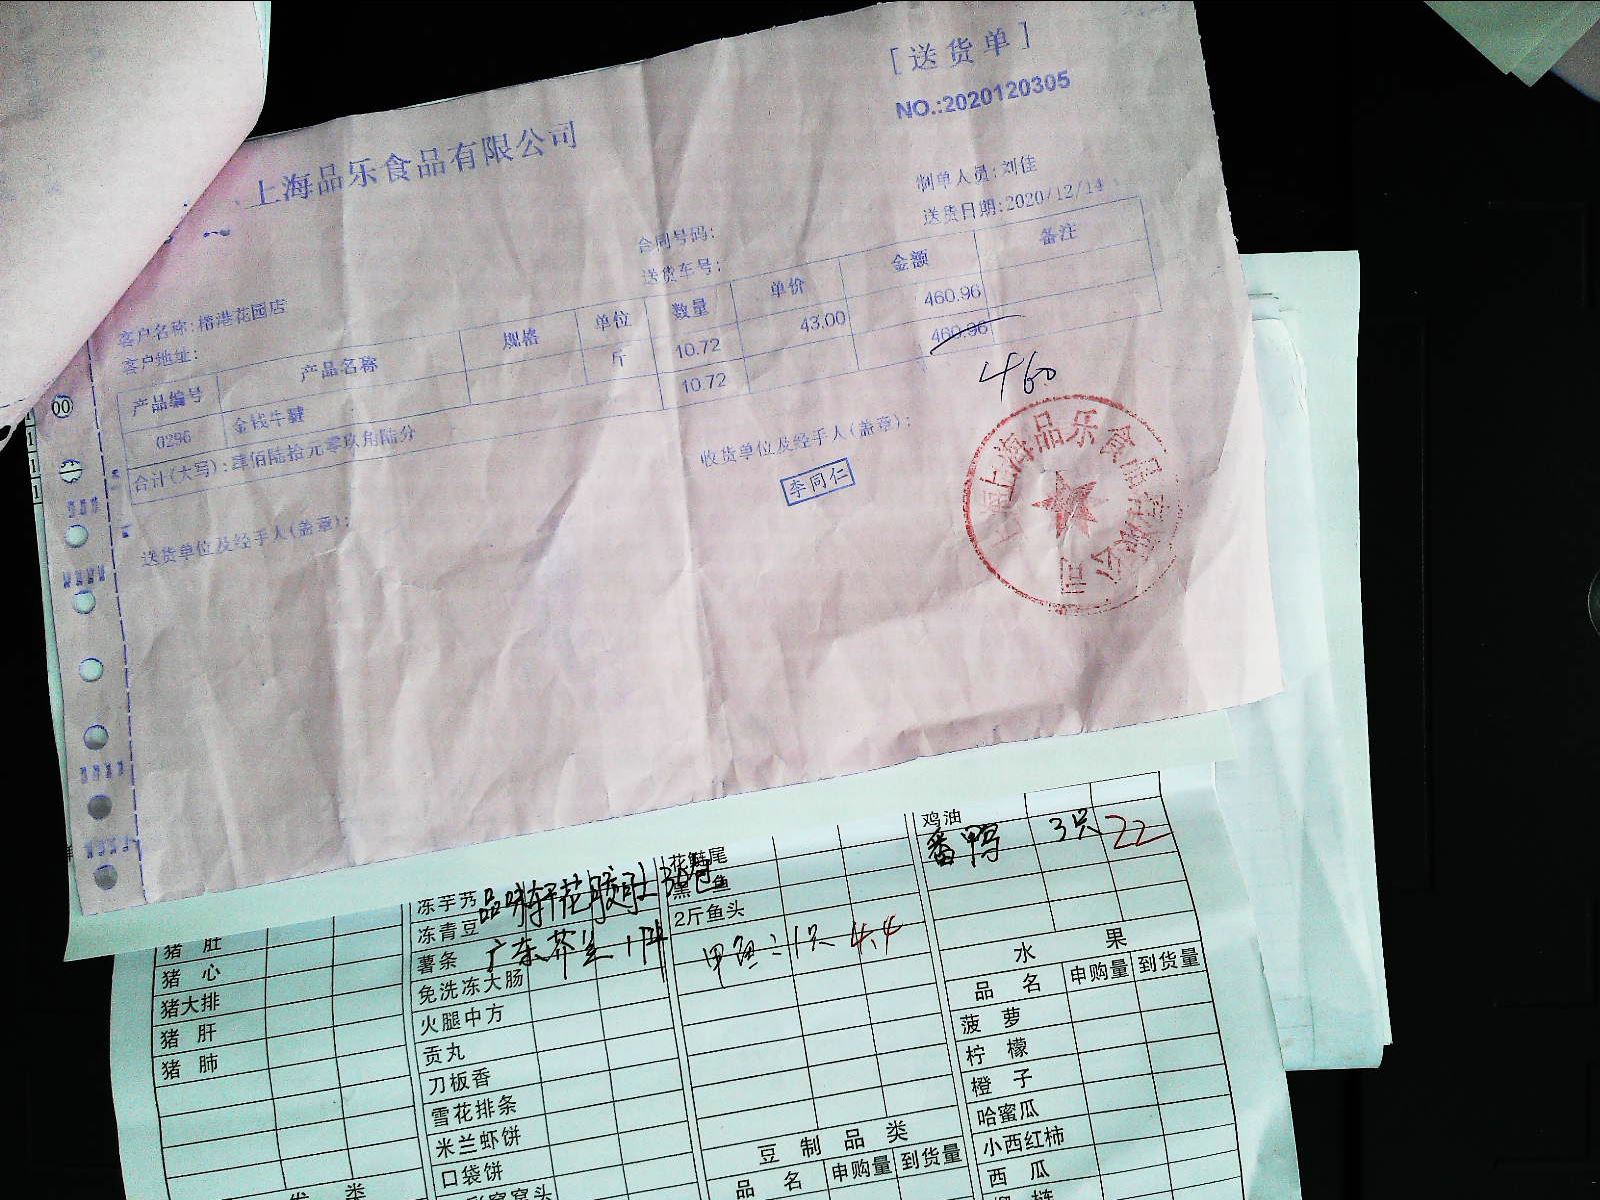 [送货单]
NO.:2020120305
上海品乐食品有限公司
制单人员:刘佳
送货日期:2020/12/14
合同号码:
送货车号:
客户名称:楷港花园店
客户地址:
产品编号 产品名称 规格 单位 数量 单价 金额 备注
0296 金钱牛腱 斤 10.72 43.00 460.96
合计(大写):肆佰陆拾元零玖角陆分 10.72 460.96
460
送货单位及经手人(盖章):
收货单位及经手人(盖章):
李同仁
上海品乐食品有限公司
00
猪 肚
猪 心
猪大排
猪 肝
猪 肺
冻芋艿
冻青豆
薯条 广东芥兰 1件
免洗冻大肠
火腿中方
贡丸
刀板香
雪花排条
米兰虾饼
口袋饼
花鲢尾
黑巴鱼
2斤鱼头
甲鱼:1只 4.4
豆 制 品 类
品 名 申购量 到货量
鸡油
番鸭 3只 22
水 果
品 名 申购量 到货量
菠 萝
柠 檬
橙 子
哈蜜瓜
小西红柿
西 瓜